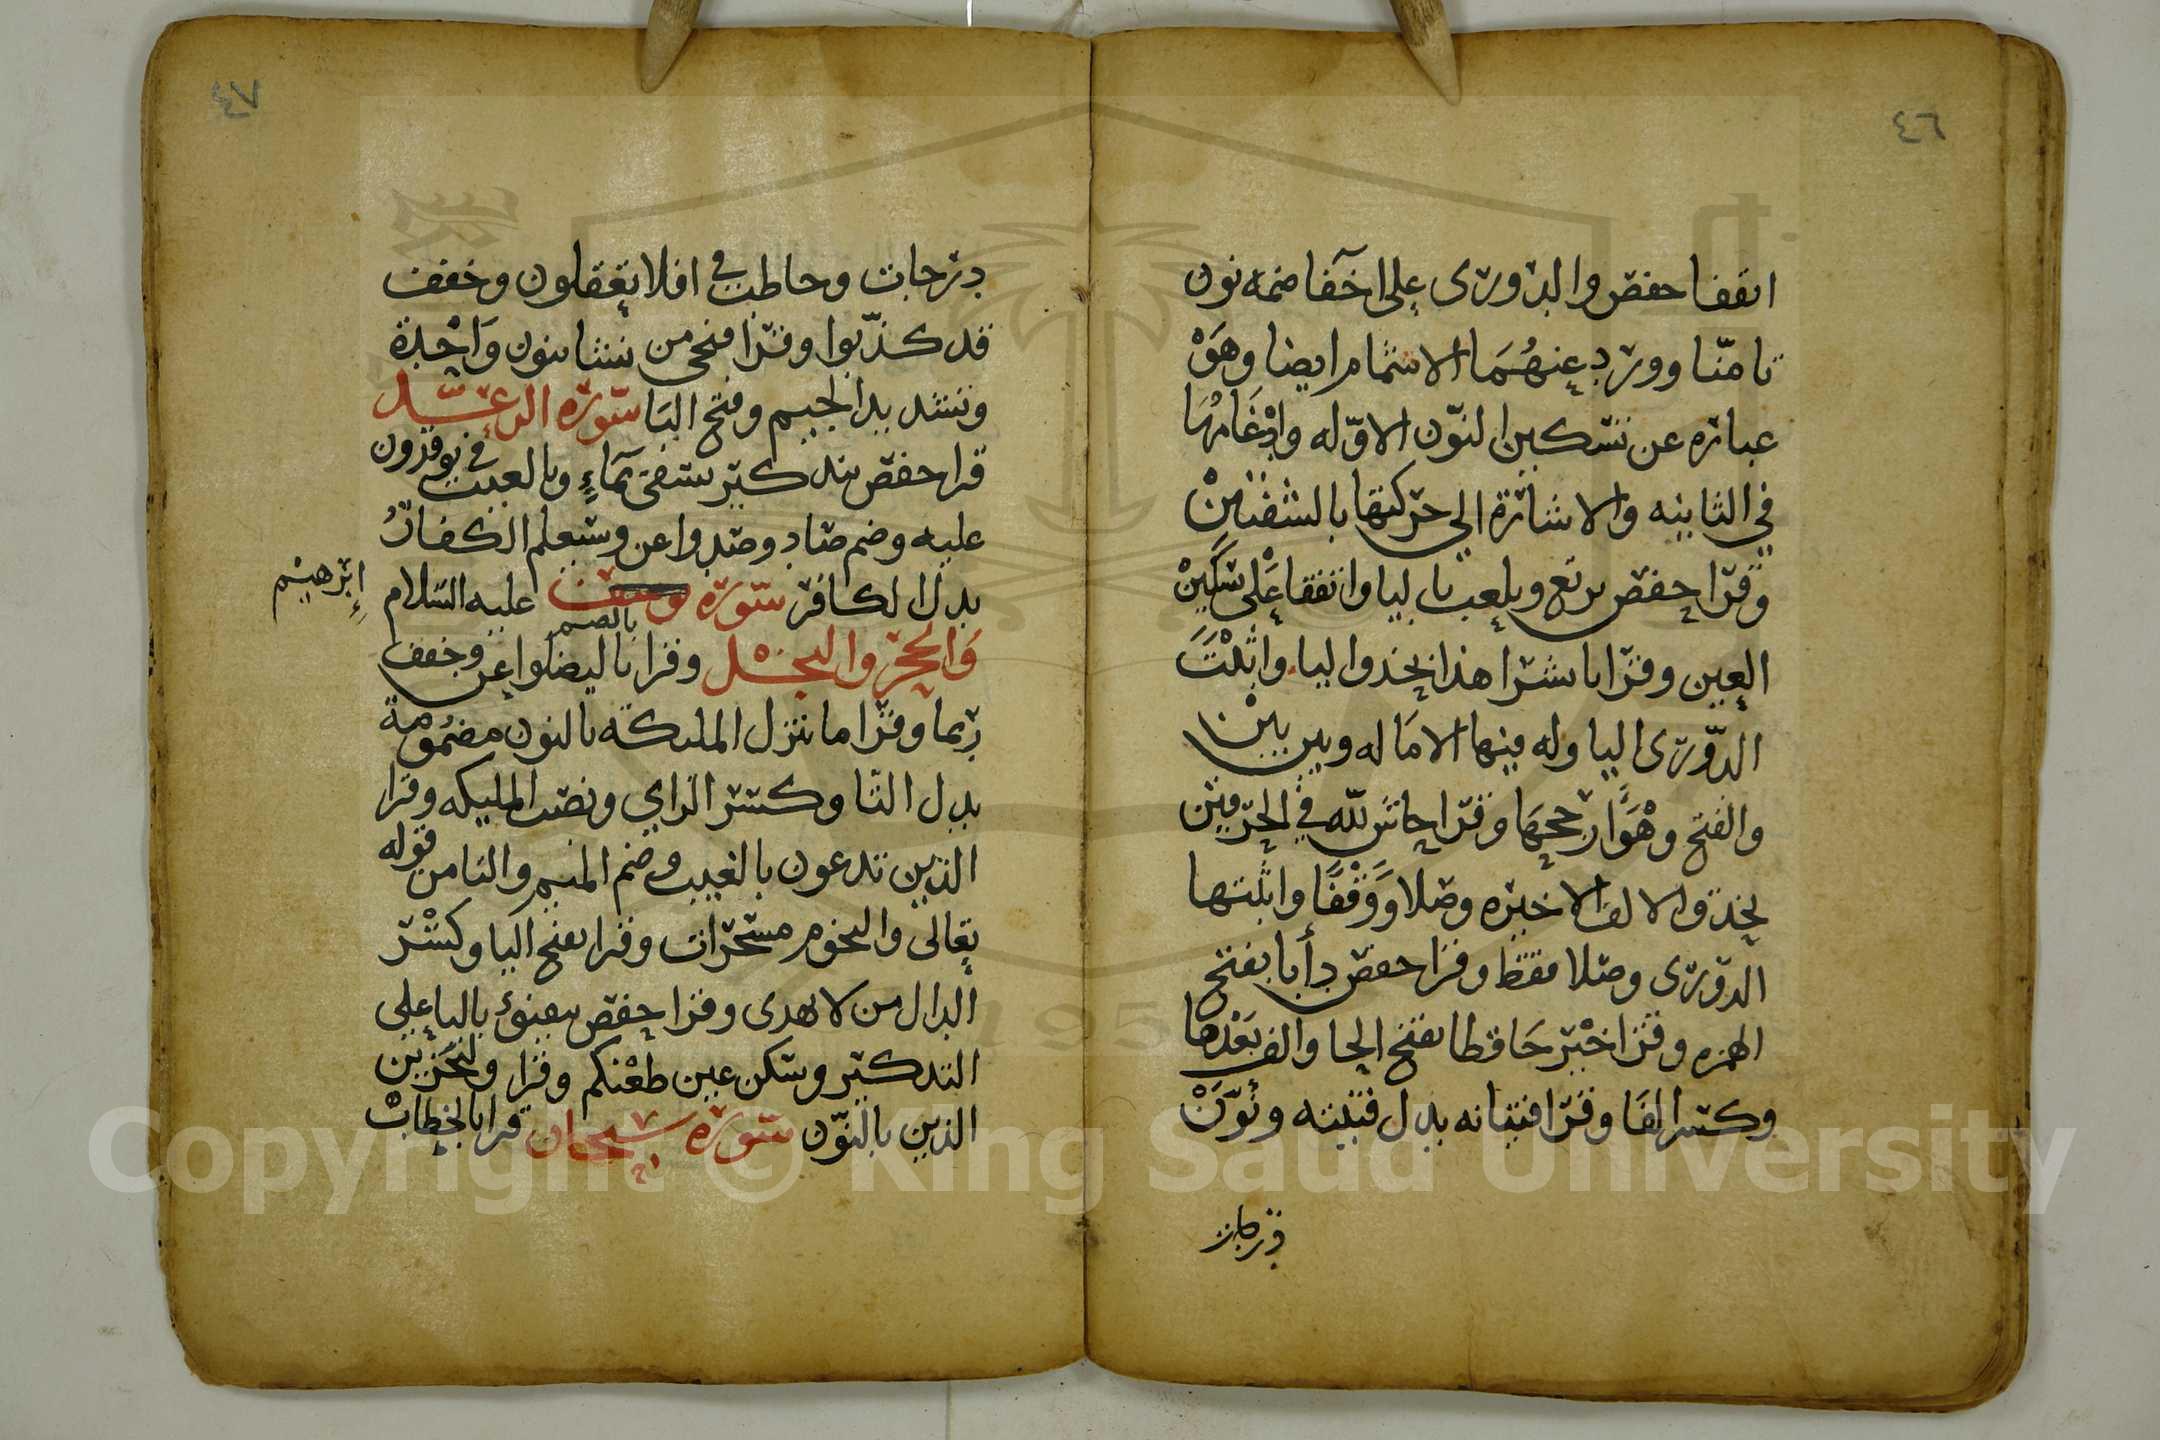 ٤٦
اتفقا حفص والدوري على اخفا ضمه نون
تامنّا وورد عنهُمَا الاشمام ايضا وهوَ
عباره عن تسكين النوّن الاوّله وادْغَامهَا
في الثانيه والاشارة الي حركتها بالشفتينْ
وقرا حفص يرتع ويلعب باليا واتفقا عَلى تسكينْ
العين وقرا يا بشرا هذا بحذوا ليا واثبْتَ
الدّوري اليا وله فيها الاماله وبين بينْ
والفتح وهْوَ ارجحهَا وقرا حاش لله في الحرفين
بحذو الالف الاخيره وصلا ووَقْفًا واثبتها
الدوري وصلا فقط وقرا حفص دأبا بفتح
الهمزه وقرا خيْر حَافظا بفتح الحا والف بعْدها
وكسر الفا وقرا فتيانه بدل فتيته ونُوّنْ
درجات
٤٧
درجات وخاطب في افلا تعقلون وخفف
قد كذّبوا وقرا فنجي من نشا بنون وَاحْدة
وتشديد الجيم وفتح اليَا سوره الرعد
قرا حفص بتدكير يسقى بمَاءٍ وبالغيب في يوقدون
عليه وضم صاد وصدوا عن وسيعلم الكفارُ
بدل الكافر سوره يوسف عليه السّلام
إبْرهيْم
بالضم
وَالحجر والنحل وقرا باليضلوا عن وخفف
ربما وقرا ما ننزل المليكه بالنون مضمُومة
بدل التا وكسر الزاي ونصب المليكه وقرا
الذين تدعون بالغيب وضم الميم والتا من قوله
تعالى والنجوم مسخرات وقرا بفتح اليا وكسْر
الدال من لا يهدى وقرا حفص يتفيؤ باليا على
التدكير وسكن عين ظعْنكم وقرا ولنجْزين
الذين بالنوّن سوره سبحان قرا بالخطابْ